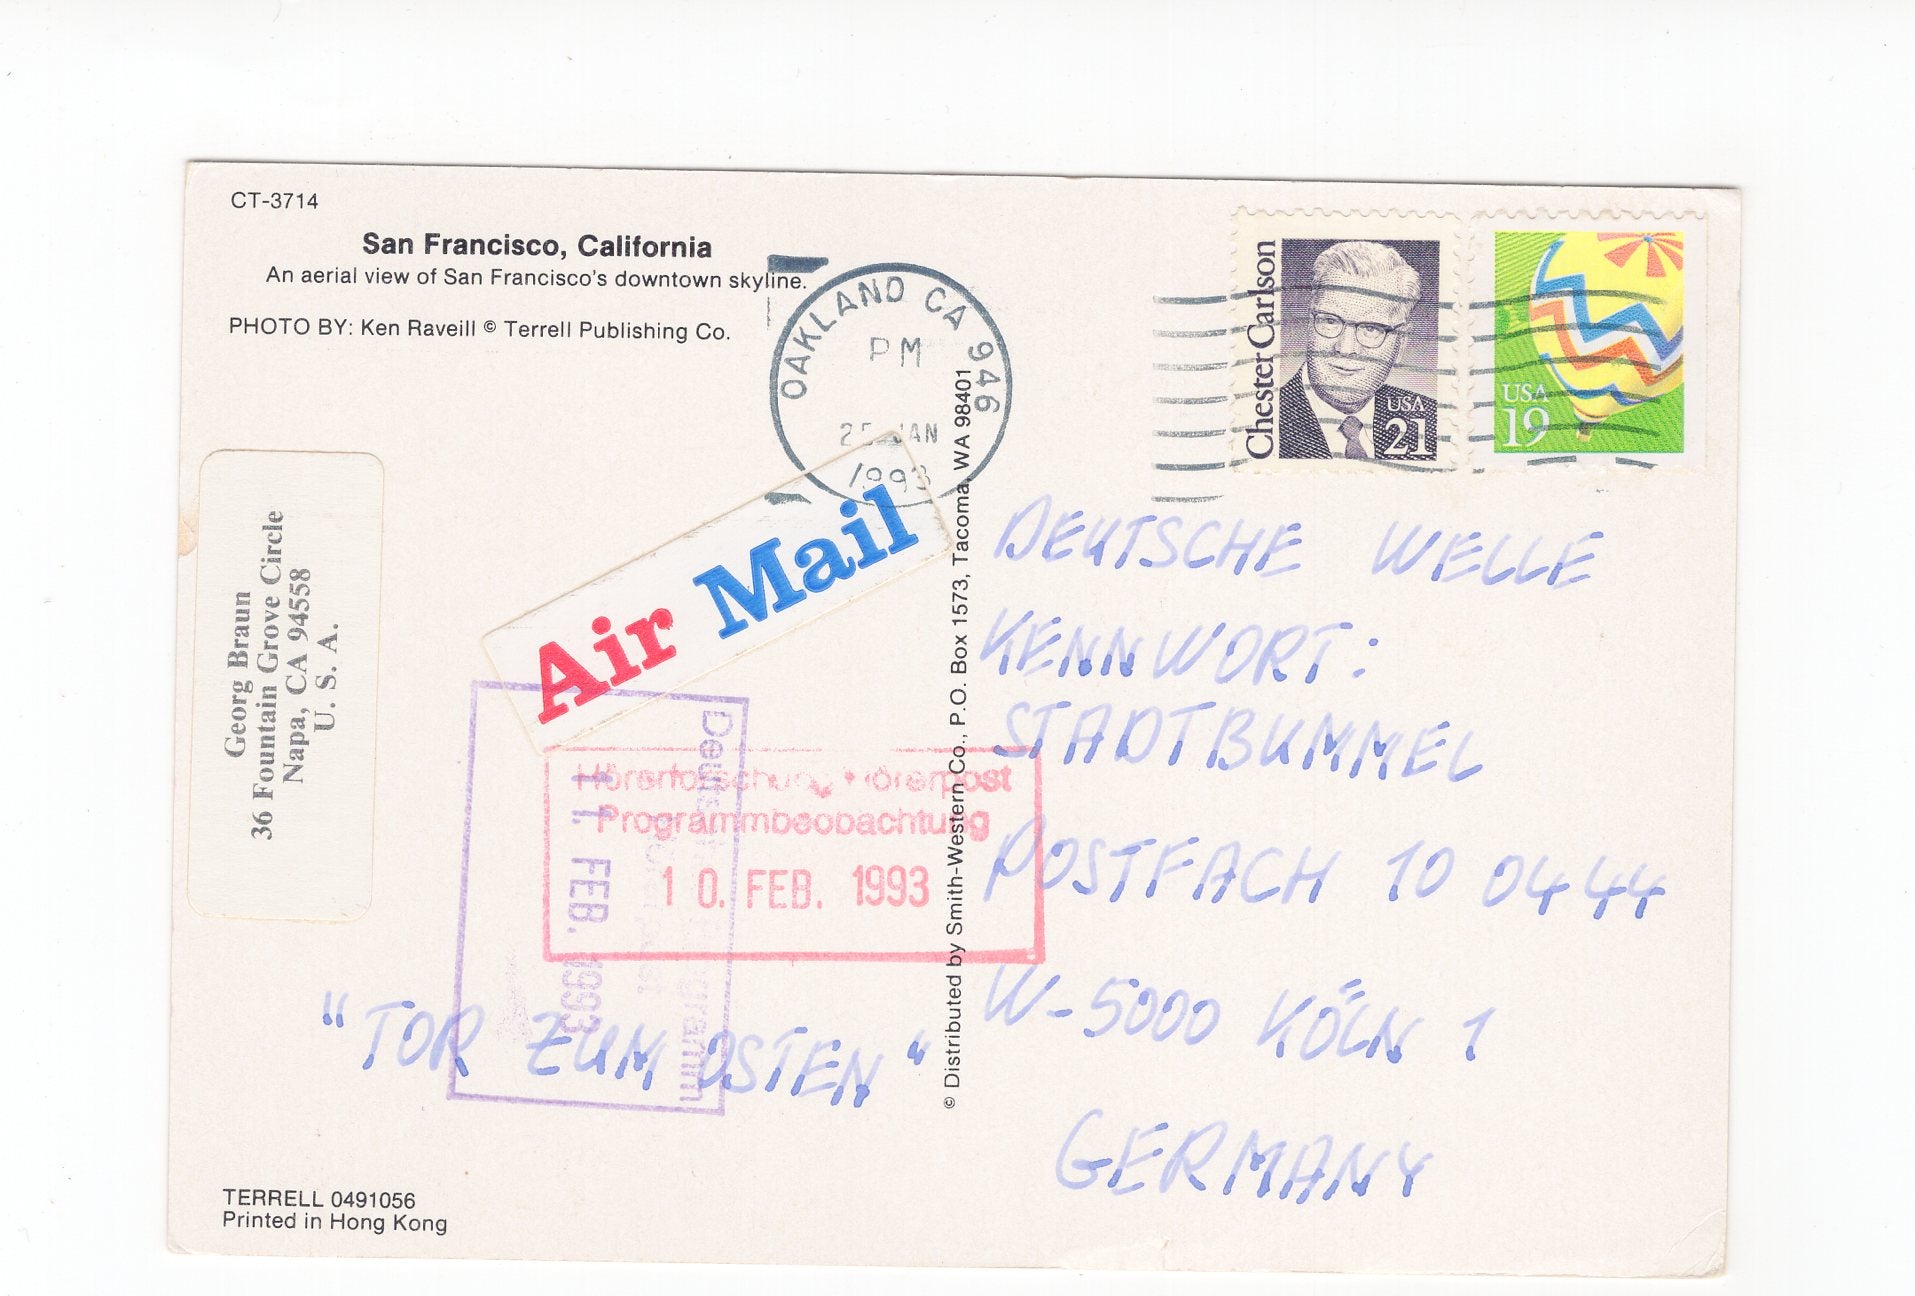 CT-3714
San Francisco, California
An aerial view of San Francisco's downtown skyline.
PHOTO BY: Ken Raveill © Terrell Publishing Co.
OAKLAND CA 946
PM
JAN
1993
Chester Carlson
USA
21
USA
19
Georg Braun
36 Fountain Grove Circle
Napa, CA 94558
U. S. A.
Air Mail
Hörerforschung • Hörerpost
Programmbeobachtung
10. FEB. 1993
11. FEB. 1993
"TOR ZUM OSTEN"
© Distributed by Smith-Western Co., P.O. Box 1573, Tacoma, WA 98401
DEUTSCHE WELLE
KENNWORT:
STADTBUMMEL
POSTFACH 10 04 44
W-5000 KÖLN 1
GERMANY
TERRELL 0491056
Printed in Hong Kong